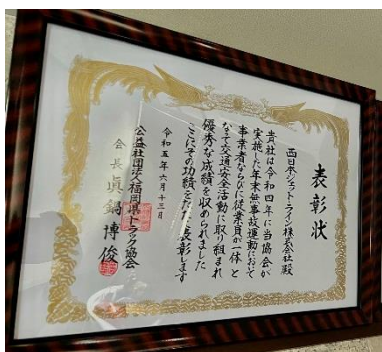 表彰状
西日本ジェット・ライン株式会社殿
貴社は令和四年に当協会が
実施した年末無事故運動において
事業者ならびに従業員が一体と
なって交通安全活動に取り組まれ
優秀な成績を収められました
ここにその功績をたたえ表彰します
令和五年六月十三日
公益社団法人福岡県トラック協会
会長 眞鍋博俊